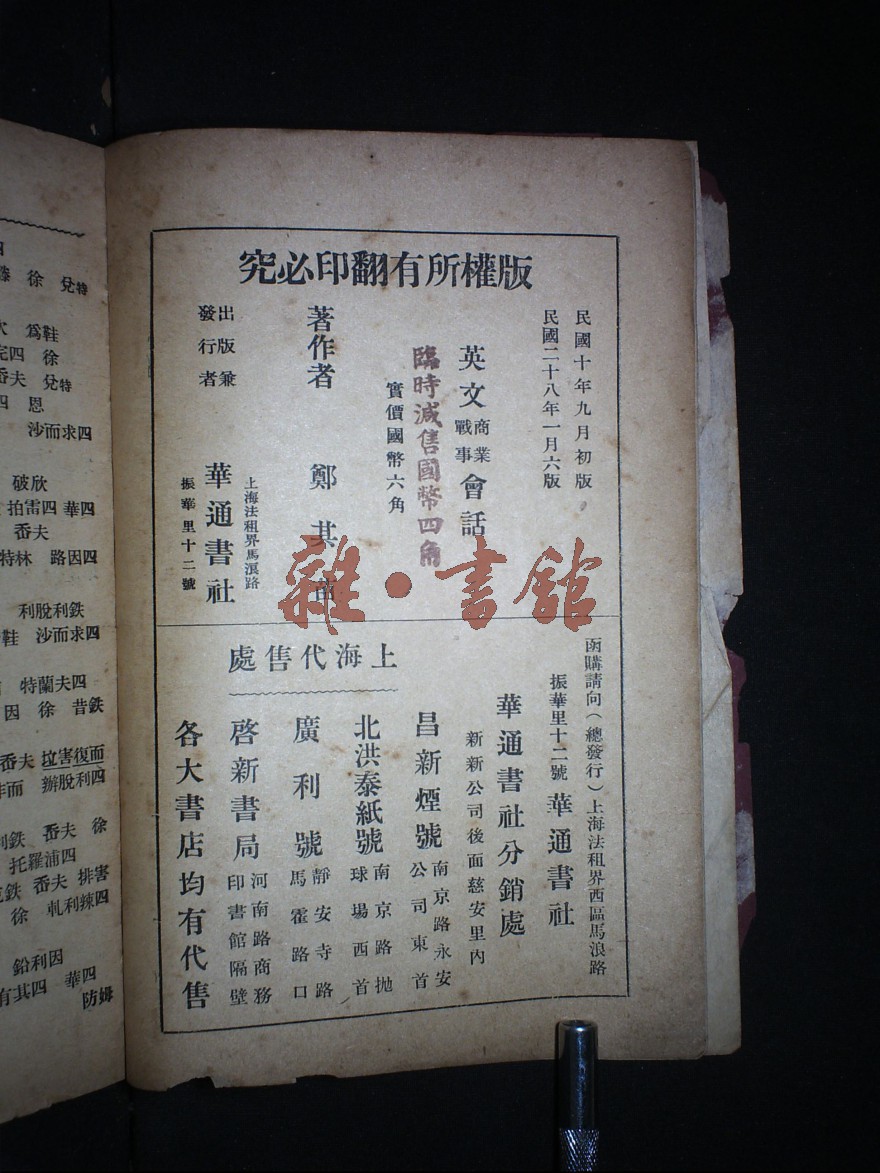 版權所有翻印必究
民國十年九月初版
民國二十八年一月六版
英文商業戰事會話
臨時減售國幣四角
實價國幣六角
著作者 鄭其
出版兼發行者
上海法租界馬浪路
華通書社
振華里十二號
函購請向(總發行)上海法租界西區馬浪路
振華里十二號 華通書社
華通書社分銷處
新新公司後面慈安里內
上海代售處
昌新煙號 南京路永安公司東首
北洪泰紙號 南京路拋球場西首
廣利號 靜安寺路馬霍路口
啓新書局 河南路商務印書館隔壁
各大書店均有代售
雜·書館
徐 兌特
為鞋
四 徐
夫 兌特
四 恩
沙 而求四
破 欣
拍雷四華四
岙夫
特林 路因四
利脫利鉄
鞋 沙 而求四
特蘭夫四
因 徐 昔鉄
岙夫 垃害復而
而 辦脫利四
鉄 岙夫 徐
托羅浦四
鉄 岙夫 排害
徐 軋利辣四
鉛利因
有其四 華四
防姆